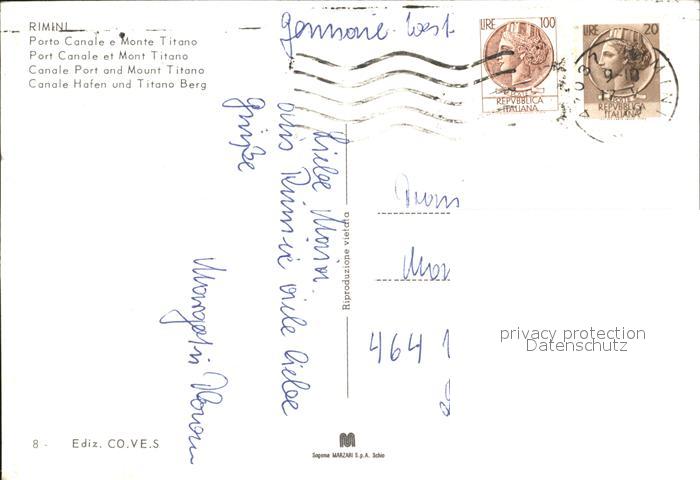 RIMINI
Porto Canale e Monte Titano
Port Canale et Mont Titano
Canale Port and Mount Titano
Canale Hafen und Titano Berg
LIRE 100
REPVBBLICA
ITALIANA
LIRE 20
REPVBBLICA
ITALIANA
Liebe Maria.
aus Rimini viele liebe
Grüße
Riproduzione vietata
4641
privacy protection
Datenschutz
8 - Ediz. CO.VE.S
M
Sagoma MARZARI S.p.A. Schio